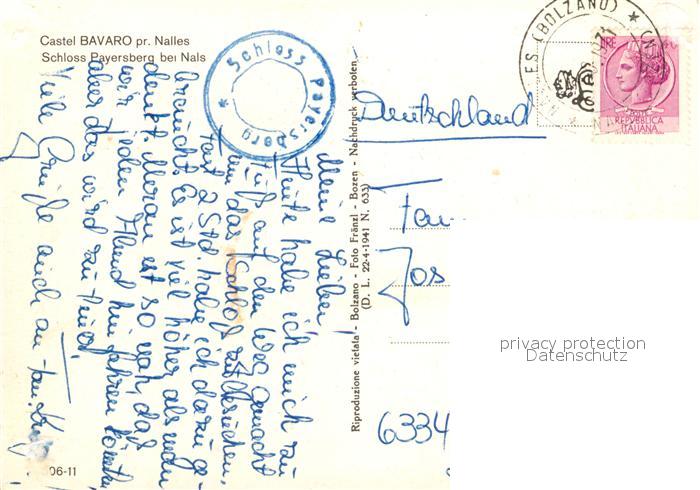 Castel BAVARO pr. Nalles
Schloss Payersberg bei Nals
Schloss Payersberg
Meine Lieben!
Heute habe ich mich zu
Fuß auf den Weg gemacht
um das Schloß zu besuchen.
Fast 2 Std. habe ich dazu ge-
braucht. Es ist viel höher als man
denkt. Meran ist so nah, daß
wir jeden Abend hin fahren könnten
aber das wird zu
Viele Grüße auch an Fam.
Riproduzione vietata - Bolzano - Foto Fränzl - Bozen - Nachdruck verboten
(D. L. 22-4-1941 N. 633)
ES (BOLZANO)
LIRE
POSTE
REPVBBLICA
ITALIANA
Deutschland
Fam
Jos
6334
privacy protection
Datenschutz
06-11